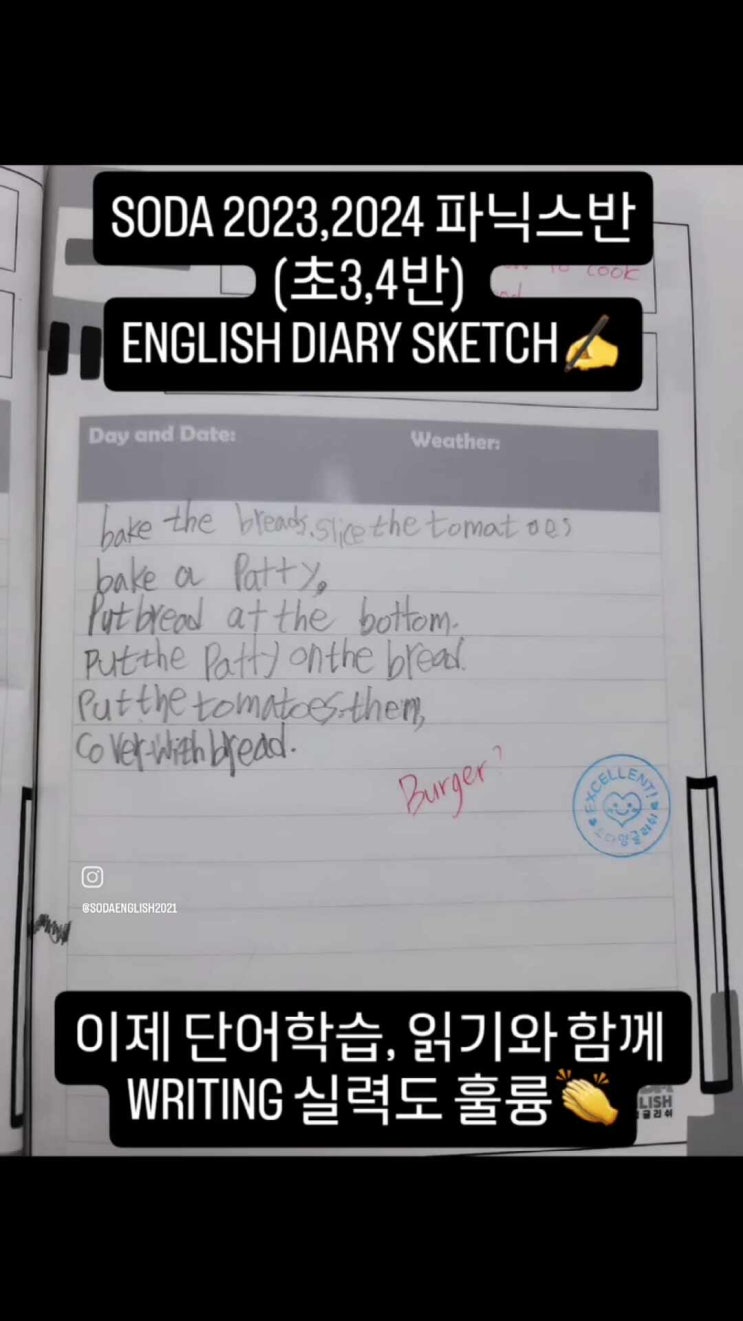 SODA 2023,2024 파닉스반
(초3,4반)
ENGLISH DIARY SKETCH✍️
to cook
Day and Date:
Weather:
bake the breads. slice the tomatoes
bake a Patty,
Put bread at the bottom.
Put the Patty on the bread.
Put the tomatoes. then,
Cover with bread.
Burger
EXCELLENT!
소다잉글리쉬
@SODAENGLISH2021
이제 단어학습, 읽기와 함께
WRITING 실력도 훌륭👏